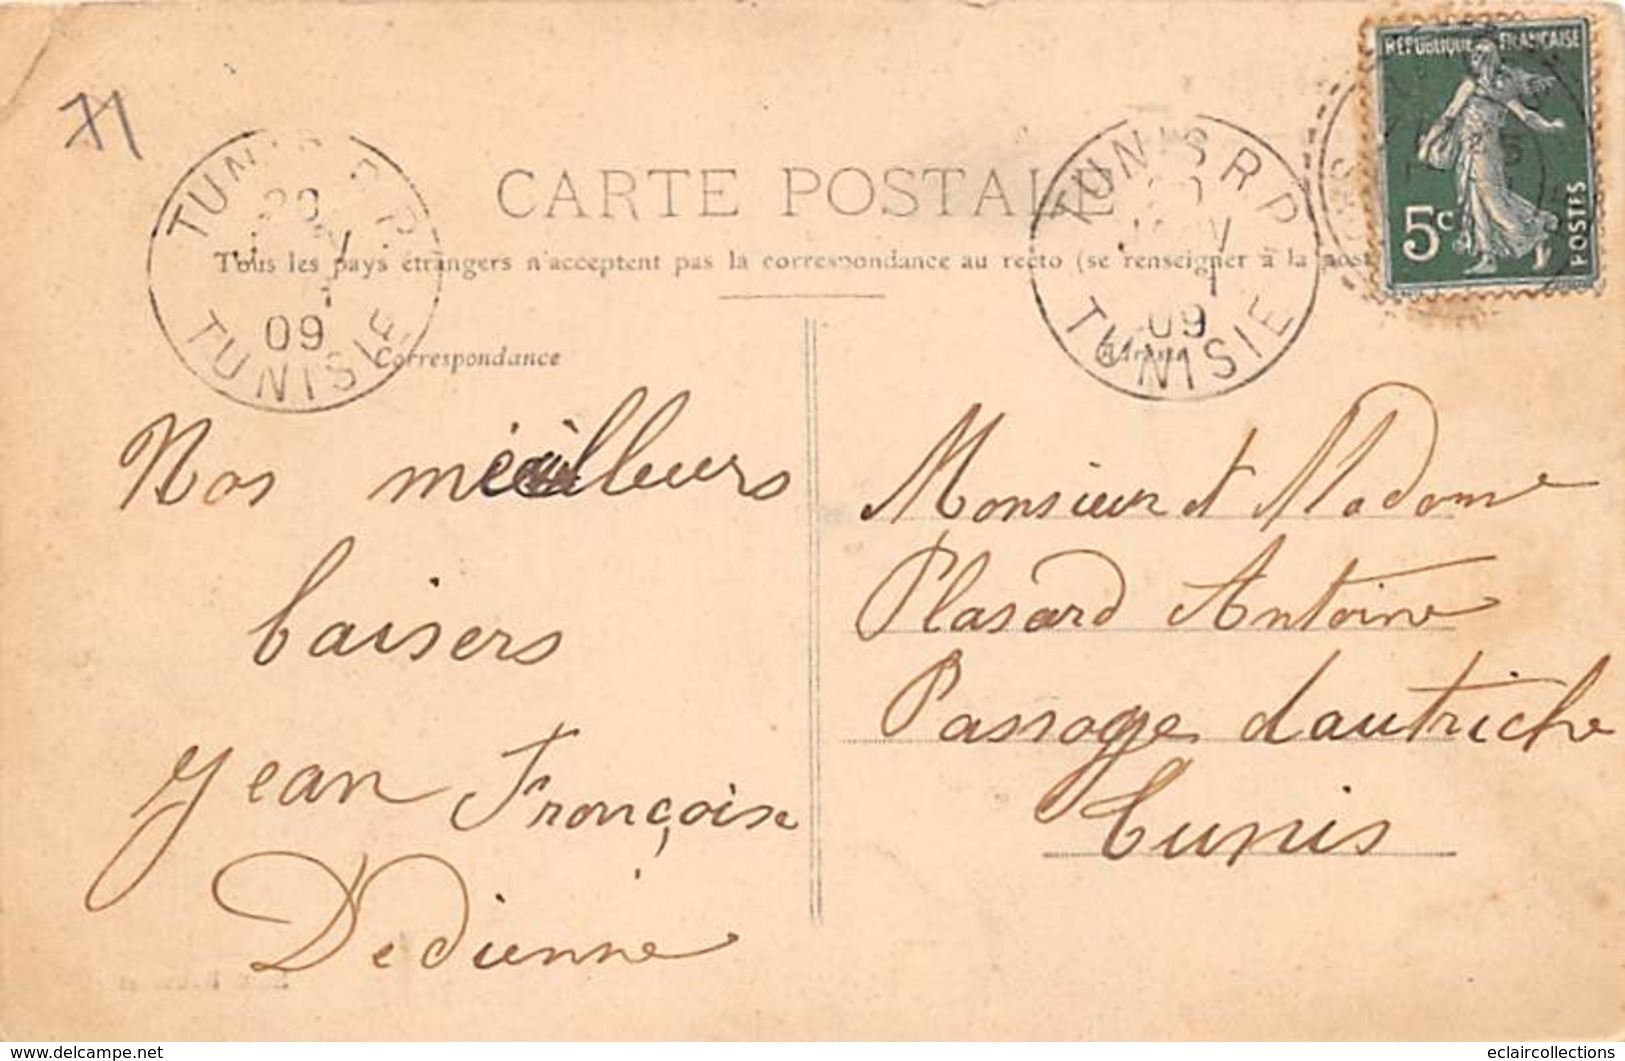 71
TUNIS R.P
20
JANV
09
TUNISIE
TUNIS R.P
20
JANV
09
TUNISIE
RÉPUBLIQUE FRANÇAISE
5c
POSTES
CARTE POSTALE
Tous les pays étrangers n'acceptent pas la correspondance au recto (se renseigner à la post
Correspondance
Nos meilleurs
baisers
Jean Françoise
Dedienne
Adresse
Monsieur et Madame
Plasard Antoine
Passage dautriche
Tunis
eclaircollections